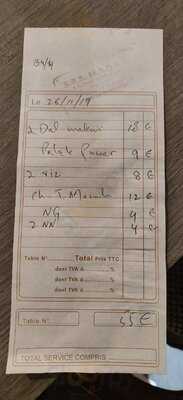 Le 26/11/19
2 Dal makani 18 €
Palak Paneer 9 €
2 riz 8 €
Ch. T. Masala 12 €
NG 4 €
2 NN 4 €
Table N° Total Prix TTC
dont TVA à %
dont TVA à %
dont TVA à %
Table N° 55 €
TOTAL SERVICE COMPRIS